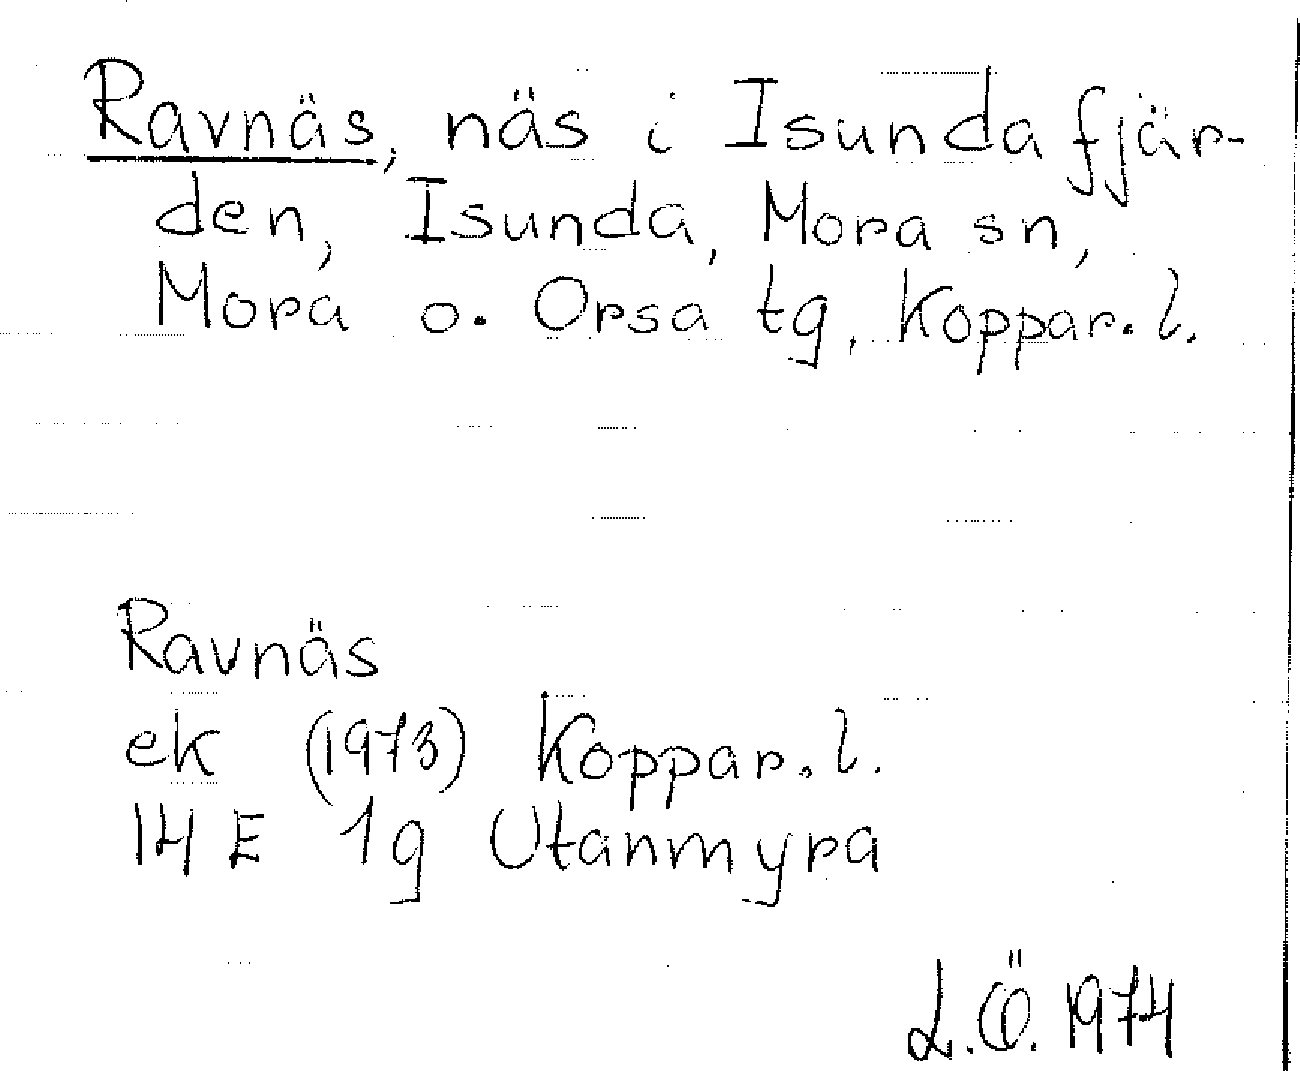 Ravnäs, näs i Isundafjär-
den, Isunda, Mora sn,
Mora o. Orsa tg, Koppar.l.
Ravnäs
ek (1973) Koppar.l.
14 E 1g Utanmyra
L.Ö. 1974